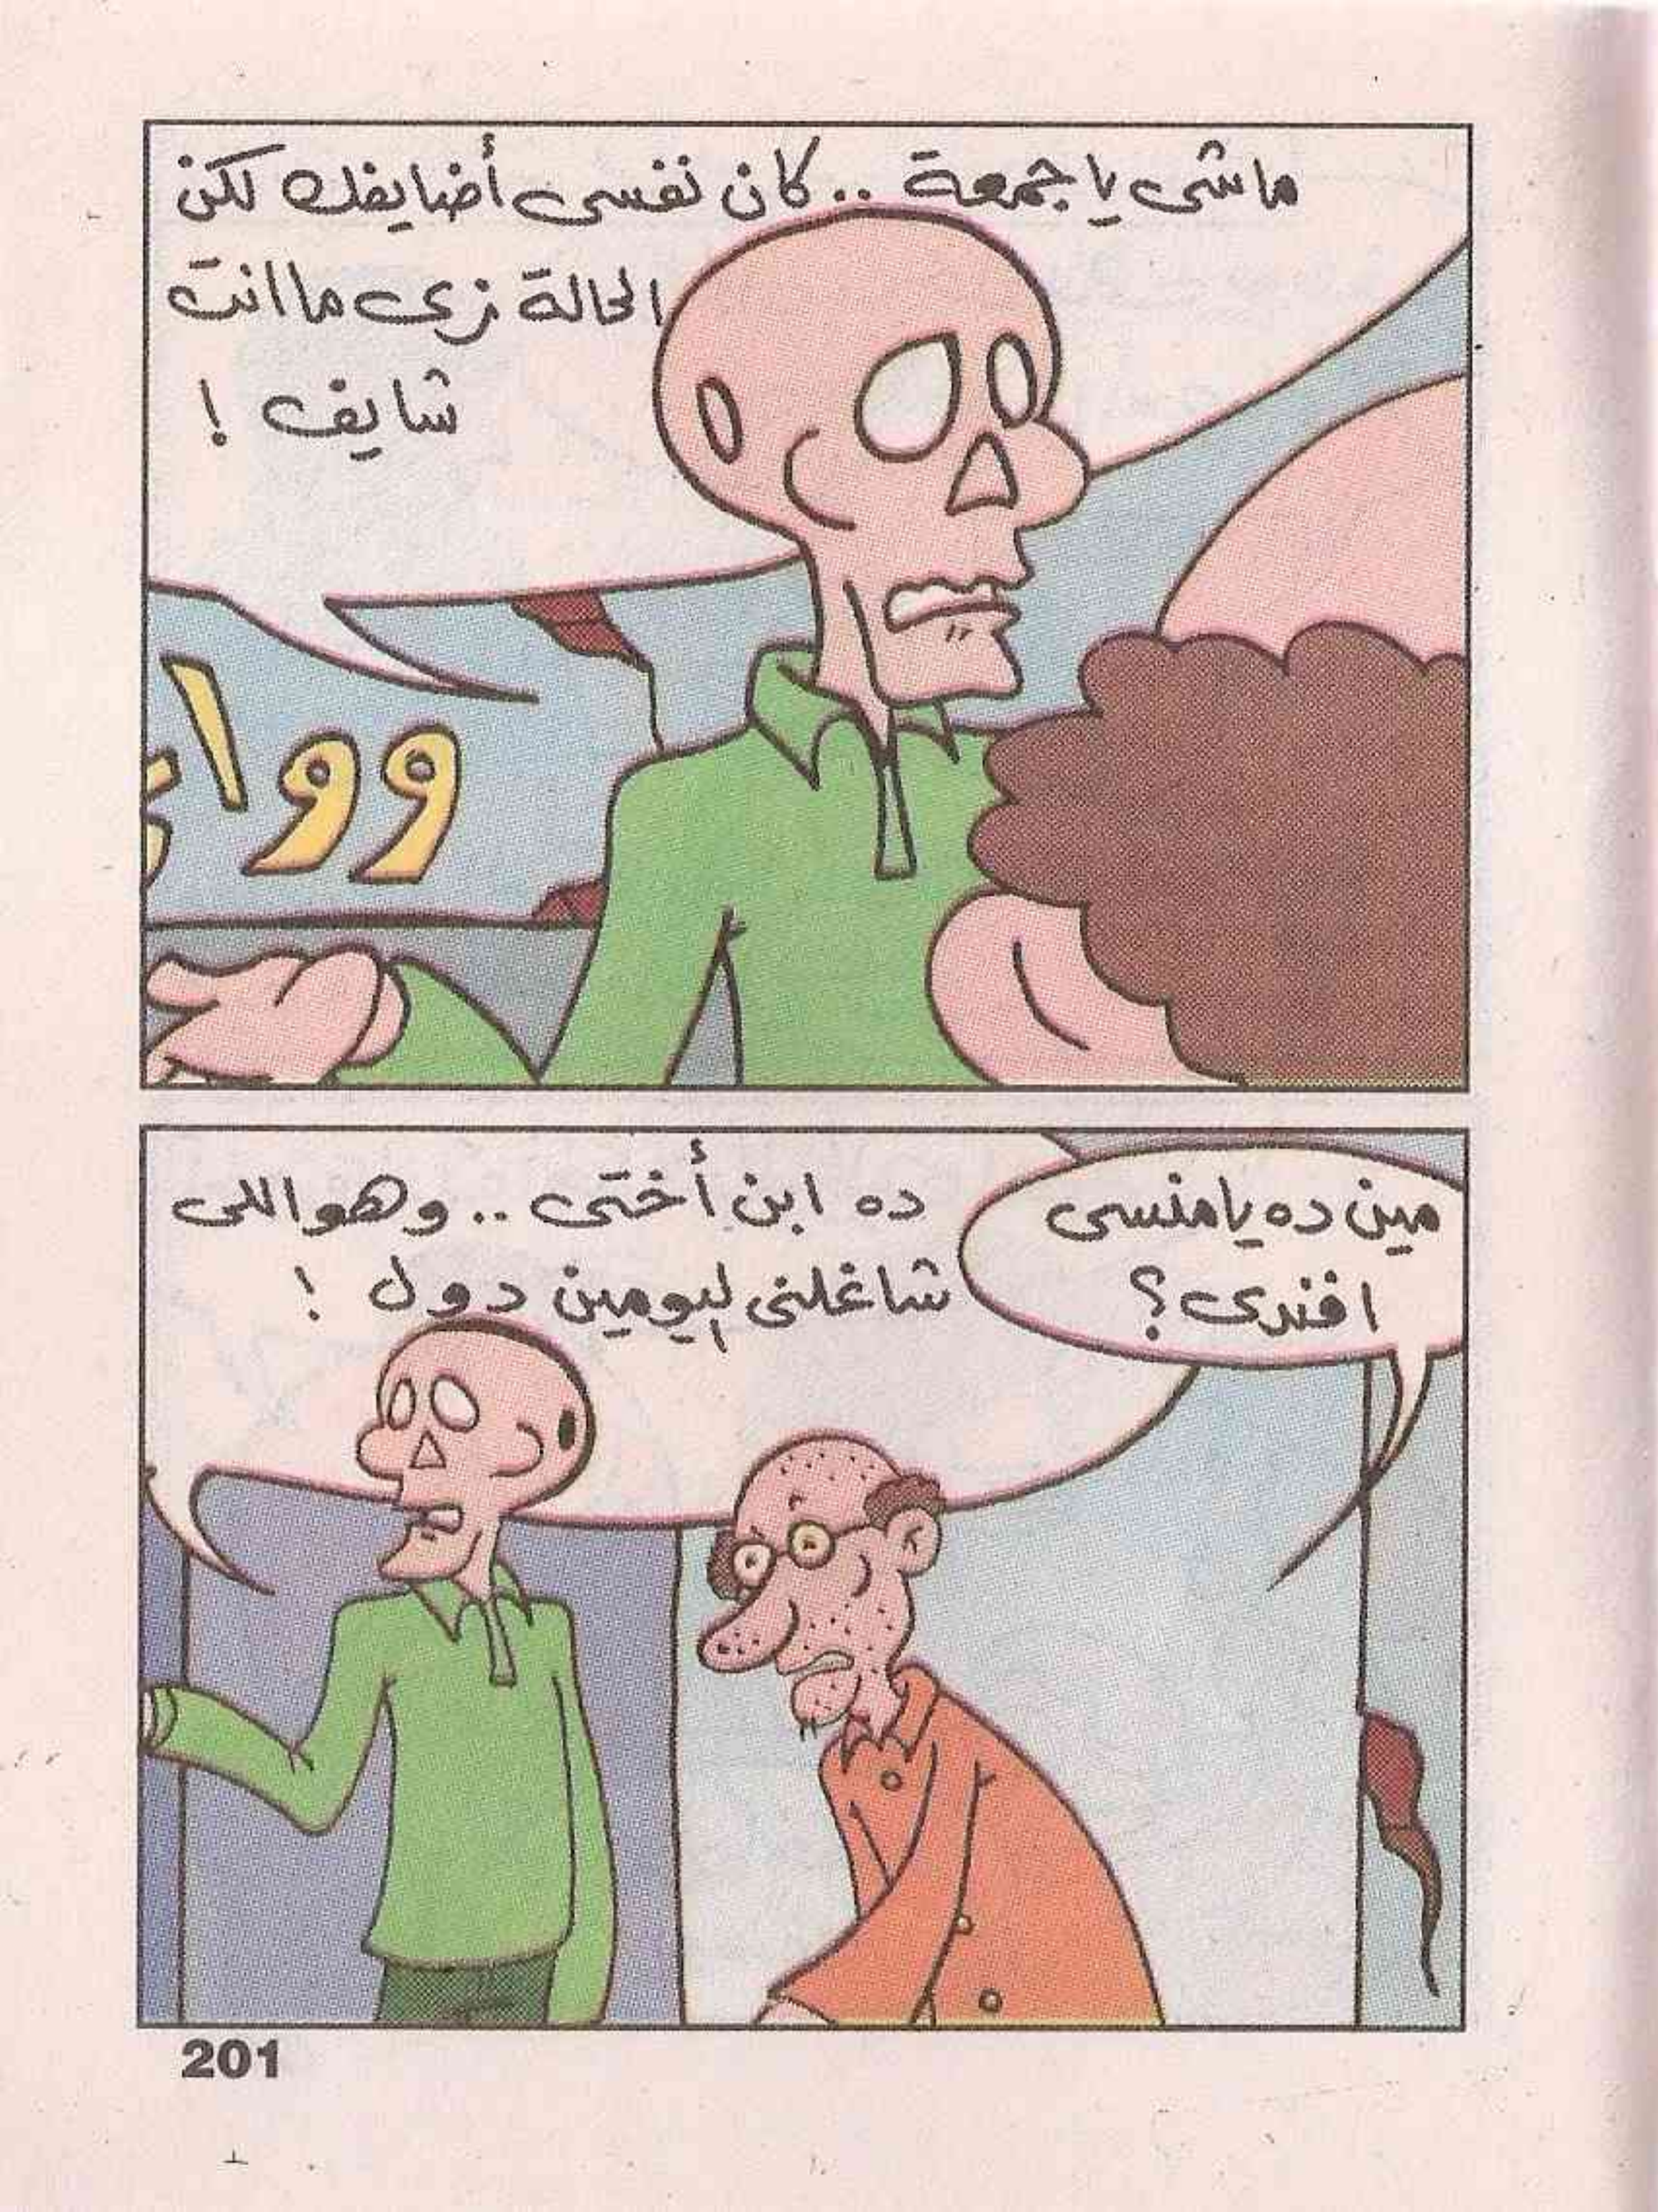 ماشى يا جمعة .. كان نفسى أضايفك لكن
الحالة زى ما انت
شايف !
وواء
مين ده يا منسى
افندى ؟
ده ابن أختى .. وهو اللى
شاغلنى ليومين دول !
201